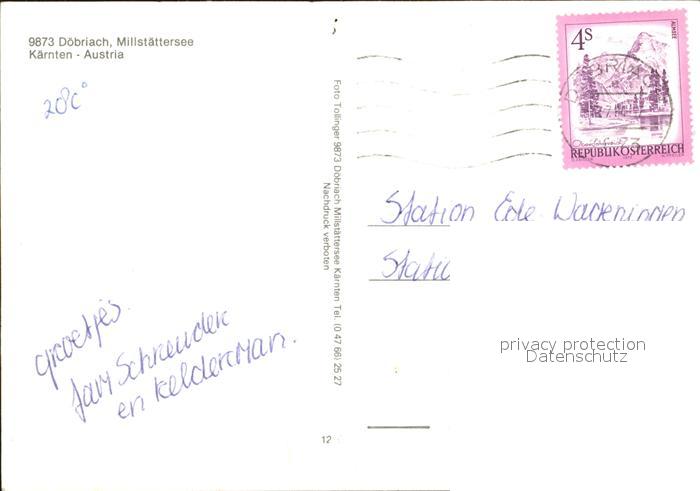 9873 Döbriach, Millstättersee
Kärnten - Austria
20°C
groetjes.
Schreuder
en Kelderman.
Foto Tollinger 9873 Döbriach Millstättersee Kärnten Tel. (0 47 66) 25 27
Nachdruck verboten
12
4S
ALMSEE
REPUBLIK ÖSTERREICH
Station
Static
privacy protection
Datenschutz